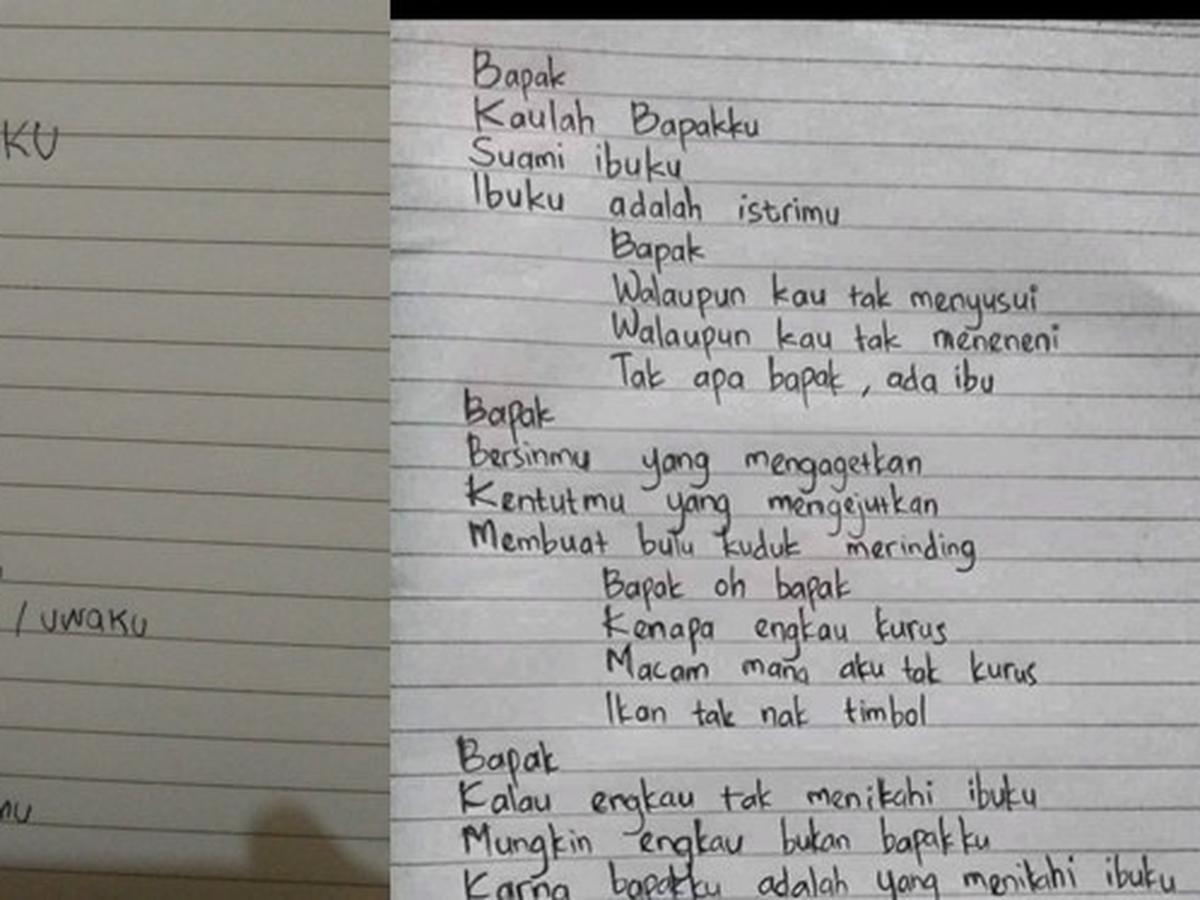 KU
/ UWAKU
mu
Bapak
Kaulah Bapakku
Suami ibuku
Ibuku adalah istrimu
Bapak
Walaupun kau tak menyusui
Walaupun kau tak meneneni
Tak apa bapak, ada ibu
Bapak
Bersinmu yang mengagetkan
Kentutmu yang mengejutkan
Membuat bulu kuduk merinding
Bapak oh bapak
Kenapa engkau kurus
Macam mana aku tak kurus
Ikan tak nak timbol
Bapak
Kalau engkau tak menikahi ibuku
Mungkin engkau bukan bapakku
Karna bapakku adalah yang menikahi ibuku